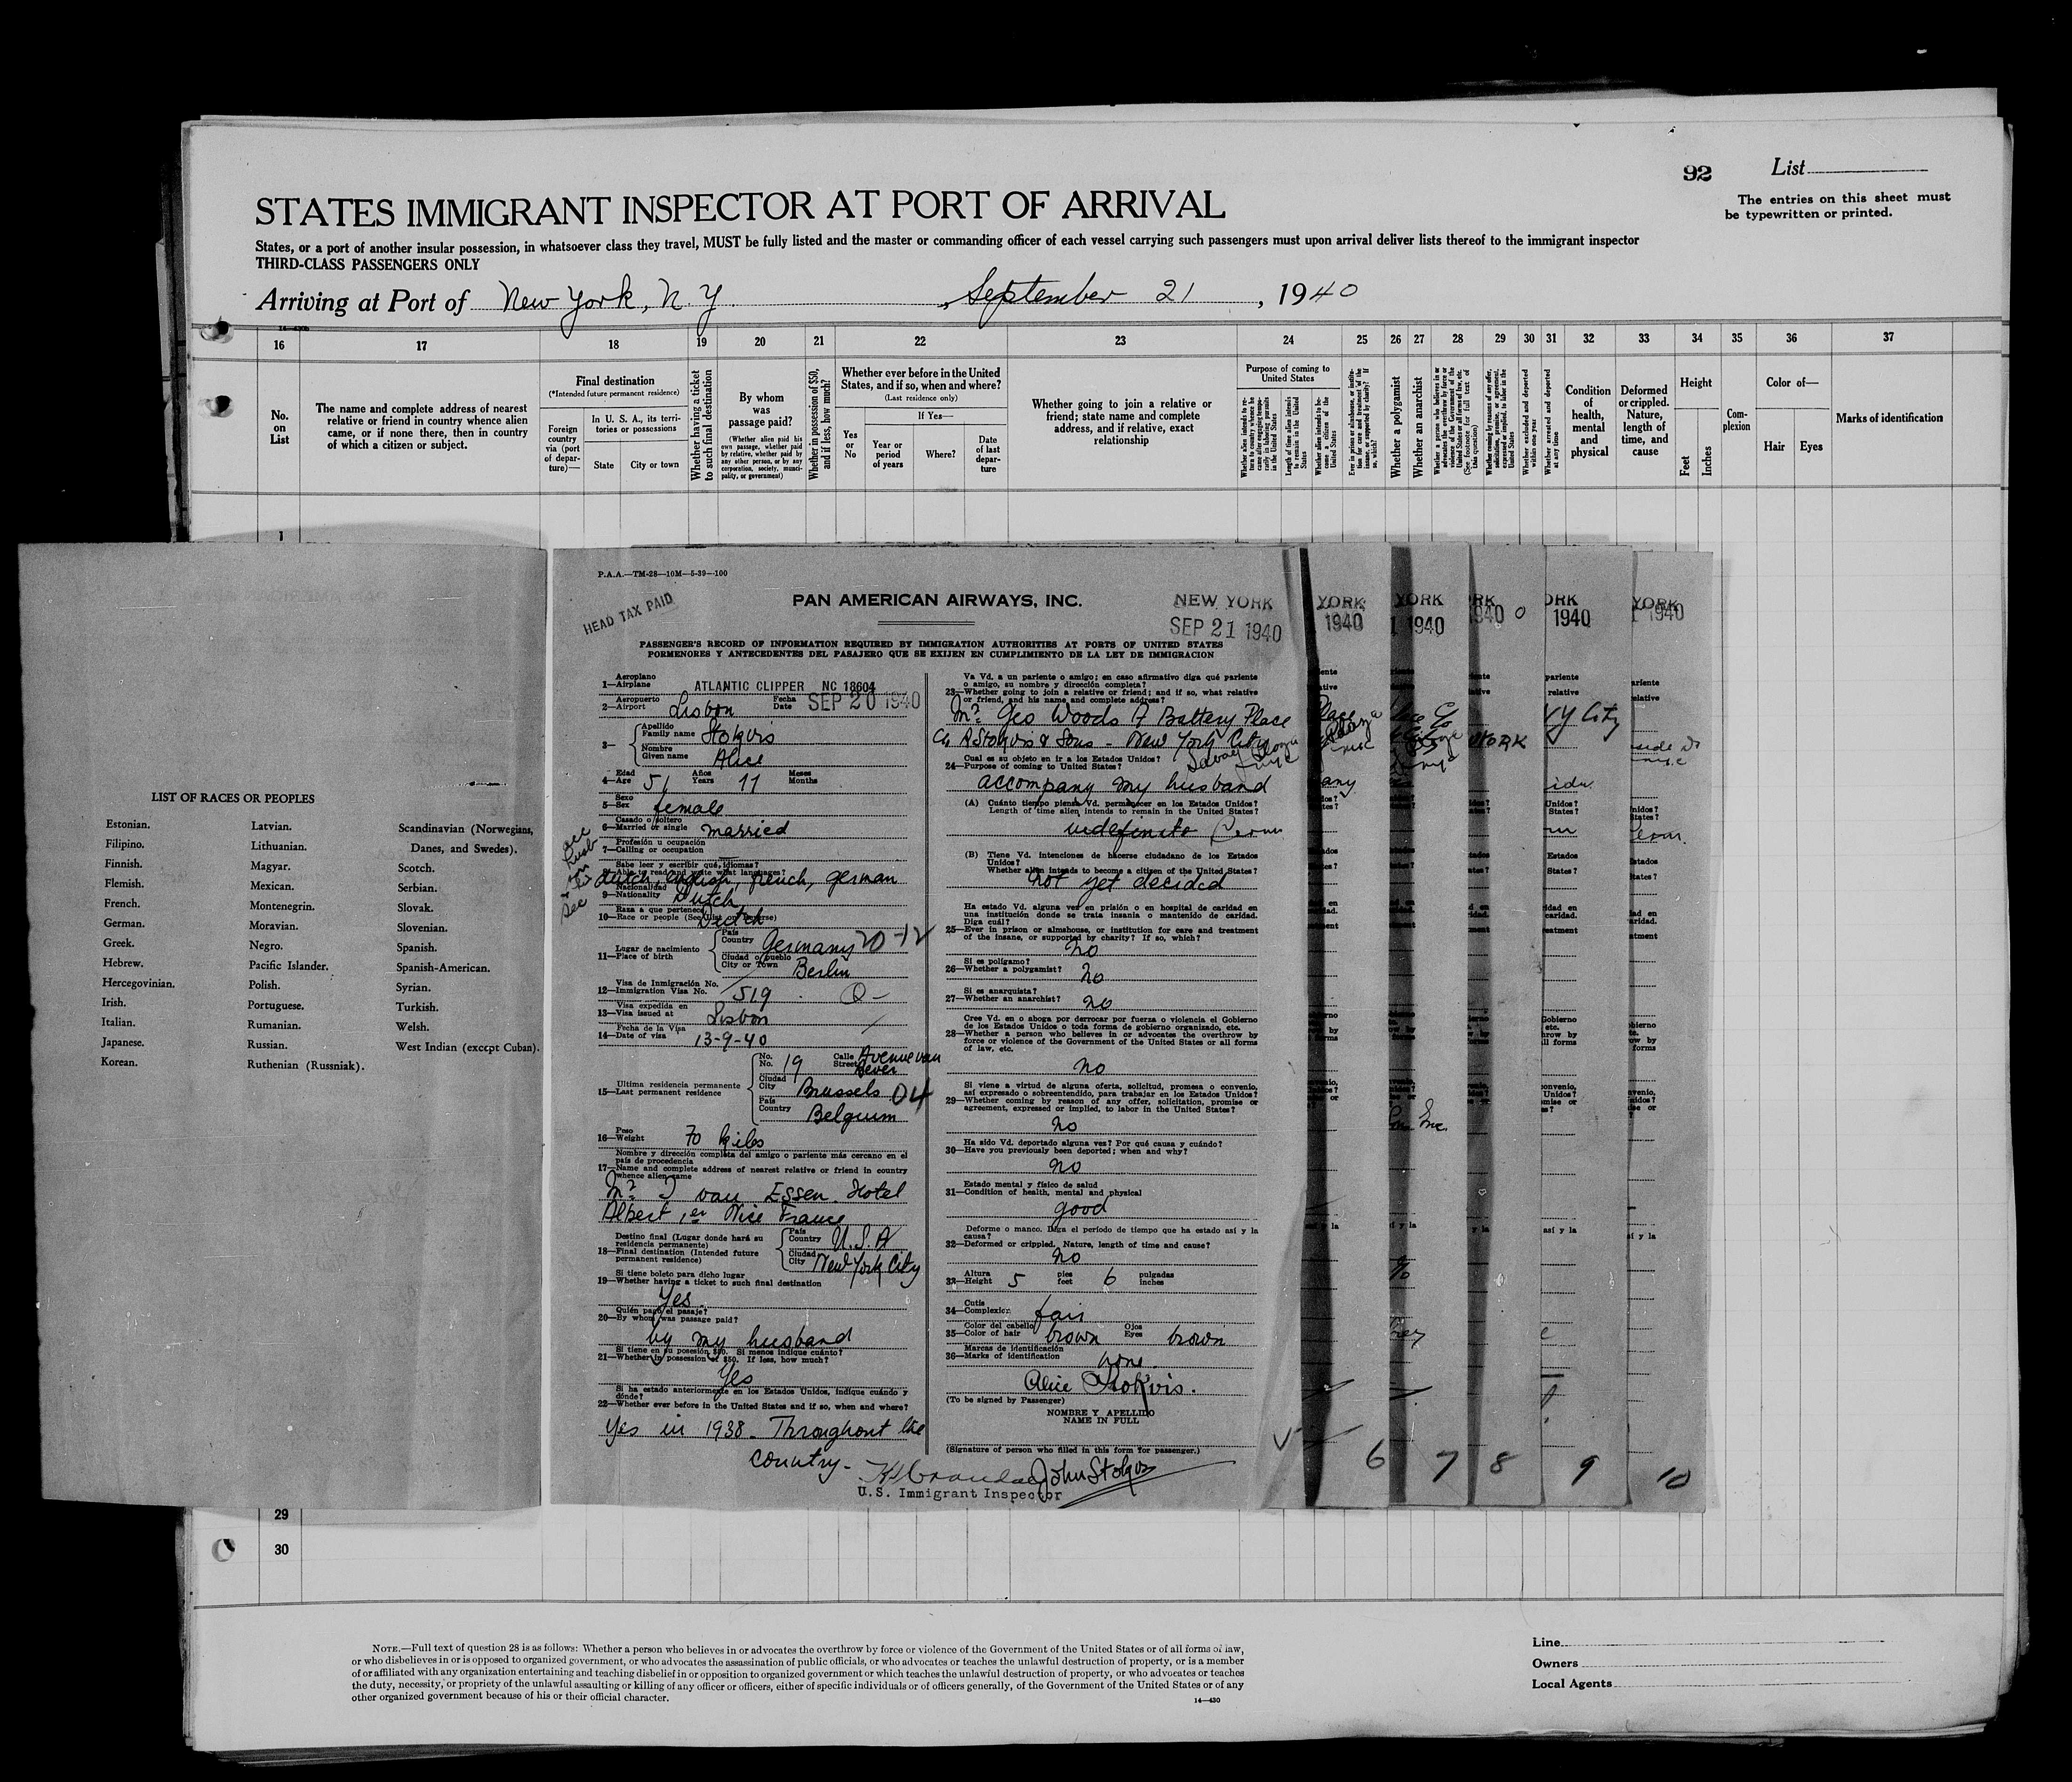 92 List
The entries on this sheet must
be typewritten or printed.
STATES IMMIGRANT INSPECTOR AT PORT OF ARRIVAL
States, or a port of another insular possession, in whatsoever class they travel, MUST be fully listed and the master or commanding officer of each vessel carrying such passengers must upon arrival deliver lists thereof to the immigrant inspector
THIRD-CLASS PASSENGERS ONLY
Arriving at Port of New York, N.Y., September 21, 1940
16 17 18 19 20 21 22 23 24 25 26 27 28 29 30 31 32 33 34 35 36 37
No. on List
The name and complete address of nearest relative or friend in country whence alien came, or if none there, then in country of which a citizen or subject.
Final destination
(*Intended future permanent residence)
Foreign country via (port of departure)—
In U. S. A., its territories or possessions
State
City or town
Whether having a ticket to such final destination
By whom was passage paid?
(Whether alien paid his own passage, whether paid by relative, whether paid by any other person, or by any corporation, society, municipality, or government)
Whether in possession of $50, and if less, how much?
Whether ever before in the United States, and if so, when and where?
(Last residence only)
If Yes—
Yes or No
Year or period of years
Where?
Date of last departure
Whether going to join a relative or friend; state name and complete address, and if relative, exact relationship
Purpose of coming to United States
Whether a polygamist
Whether an anarchist
Condition of health, mental and physical
Deformed or crippled. Nature, length of time, and cause
Height
Feet
Inches
Complexion
Color of—
Hair
Eyes
Marks of identification
1
LIST OF RACES OR PEOPLES
Estonian.
Filipino.
Finnish.
Flemish.
French.
German.
Greek.
Hebrew.
Hercegovinian.
Irish.
Italian.
Japanese.
Korean.
Latvian.
Lithuanian.
Magyar.
Mexican.
Montenegrin.
Moravian.
Negro.
Pacific Islander.
Polish.
Portuguese.
Rumanian.
Russian.
Ruthenian (Russniak).
Scandinavian (Norwegians,
Danes, and Swedes).
Scotch.
Serbian.
Slovak.
Slovenian.
Spanish.
Spanish-American.
Syrian.
Turkish.
Welsh.
West Indian (except Cuban).
P.A.A.—TM-28—10M—5-39—100
HEAD TAX PAID
PAN AMERICAN AIRWAYS, INC.
NEW YORK
SEP 21 1940
PASSENGER'S RECORD OF INFORMATION REQUIRED BY IMMIGRATION AUTHORITIES AT PORTS OF UNITED STATES
PORMENORES Y ANTECEDENTES DEL PASAJERO QUE SE EXIJEN EN CUMPLIMIENTO DE LA LEY DE IMMIGRACION
Aeroplano
1—Airplane ATLANTIC CLIPPER NC 18604
Aeropuerto
2—Airport Lisbon Fecha Date SEP 20 1940
3— Apellido Family name Stokvis
Nombre Given name Alice
Edad
4—Age 51 Años Years 11 Meses Months
Sexo
5—Sex female
Casado o soltero
6—Married or single married
Profesión u ocupación
7—Calling or occupation —
Sabe leer y escribir qué idiomas?
8—Able to read and write what languages?
dutch, english, french, german
Nacionalidad
9—Nationality Dutch
Raza a que pertenece
10—Race or people (See list on reverse) Dutch
Lugar de nacimiento
11—Place of birth
País Country Germany 20-12
Ciudad o pueblo City or Town Berlin
Visa de Inmigración No.
12—Immigration Visa No. 519 Q-
Visa expedida en
13—Visa issued at Lisbon
Fecha de la Visa
14—Date of visa 13-9-40
Ultima residencia permanente
15—Last permanent residence
No. No. 19 Calle Street Avenue van Bever
Ciudad City Brussels 04
País Country Belgium
Peso
16—Weight 70 kilos
Nombre y dirección completa del amigo o pariente más cercano en el
país de procedencia
17—Name and complete address of nearest relative or friend in country
whence alien came
Mr. J van Essen Hotel
Albert 1er Nice France
Destino final (Lugar donde hará su
residencia permanente)
18—Final destination (Intended future
permanent residence)
País Country U.S.A
Ciudad City New York City
Si tiene boleto para dicho lugar
19—Whether having a ticket to such final destination
Yes.
Quién pagó el pasaje?
20—By whom was passage paid?
by my husband
Si tiene en su posesión $50. Si menos indique cuánto?
21—Whether in possession of $50. If less, how much?
Yes
Si ha estado anteriormente en los Estados Unidos, indique cuándo y
dónde?
22—Whether ever before in the United States and if so, when and where?
Yes in 1938 - Throughout the
country -
Va Vd. a un pariente o amigo; en caso afirmativo diga qué pariente
o amigo, su nombre y dirección completa?
23—Whether going to join a relative or friend; and if so, what relative
or friend, and his name and complete address?
Mr. Geo Woods 7 Battery Place
c/o R Stokvis & Sons - New York City
Savoy Plaza NYC
Cual es su objeto en ir a los Estados Unidos?
24—Purpose of coming to United States?
accompany my husband
(A) Cuánto tiempo piensa Vd. permanecer en los Estados Unidos?
Length of time alien intends to remain in the United States?
indefinite Perm
(B) Tiene Vd. intenciones de hacerse ciudadano de los Estados
Unidos?
Whether alien intends to become a citizen of the United States?
not yet decided
Ha estado Vd. alguna vez en prisión o en hospital de caridad en
una institución donde se trata insania o mantenido de caridad.
Diga cuál?
25—Ever in prison or almshouse, or institution for care and treatment
of the insane, or supported by charity? If so, which?
no
Si es polígamo?
26—Whether a polygamist? no
Si es anarquista?
27—Whether an anarchist? no
Cree Vd. en o aboga por derrocar por fuerza o violencia el Gobierno
de los Estados Unidos o toda forma de gobierno organizado, etc.
28—Whether a person who believes in or advocates the overthrow by
force or violence of the Government of the United States or all forms
of law, etc.
no
Si viene a virtud de alguna oferta, solicitud, promesa o convenio,
así expresado o sobreentendido, para trabajar en los Estados Unidos?
29—Whether coming by reason of any offer, solicitation, promise or
agreement, expressed or implied, to labor in the United States?
no
Ha sido Vd. deportado alguna vez? Por qué causa y cuándo?
30—Have you previously been deported; when and why?
no
Estado mental y físico de salud
31—Condition of health, mental and physical
good
Deforme o manco. Diga el período de tiempo que ha estado así y la
causa?
32—Deformed or crippled. Nature, length of time and cause?
no
Altura
33—Height 5 pies feet 6 pulgadas inches
Cutis
34—Complexion fair
Color del cabello
35—Color of hair brown Ojos Eyes brown
Marcas de identificación
36—Marks of identification none.
Alice Stokvis.
(To be signed by Passenger)
NOMBRE Y APELLIDO
NAME IN FULL
(Signature of person who filled in this form for passenger.)
John Stokvis
U.S. Immigrant Inspector
6 7 8 9 10
29
30
NOTE.—Full text of question 28 is as follows: Whether a person who believes in or advocates the overthrow by force or violence of the Government of the United States or of all forms of law,
or who disbelieves in or is opposed to organized government, or who advocates the assassination of public officials, or who advocates or teaches the unlawful destruction of property, or is a member
of or affiliated with any organization entertaining and teaching disbelief in or opposition to organized government or which teaches the unlawful destruction of property, or who advocates or teaches
the duty, necessity, or propriety of the unlawful assaulting or killing of any officer or officers, either of specific individuals or of officers generally, of the Government of the United States or of any
other organized government because of his or their official character.
14—430
Line
Owners
Local Agents